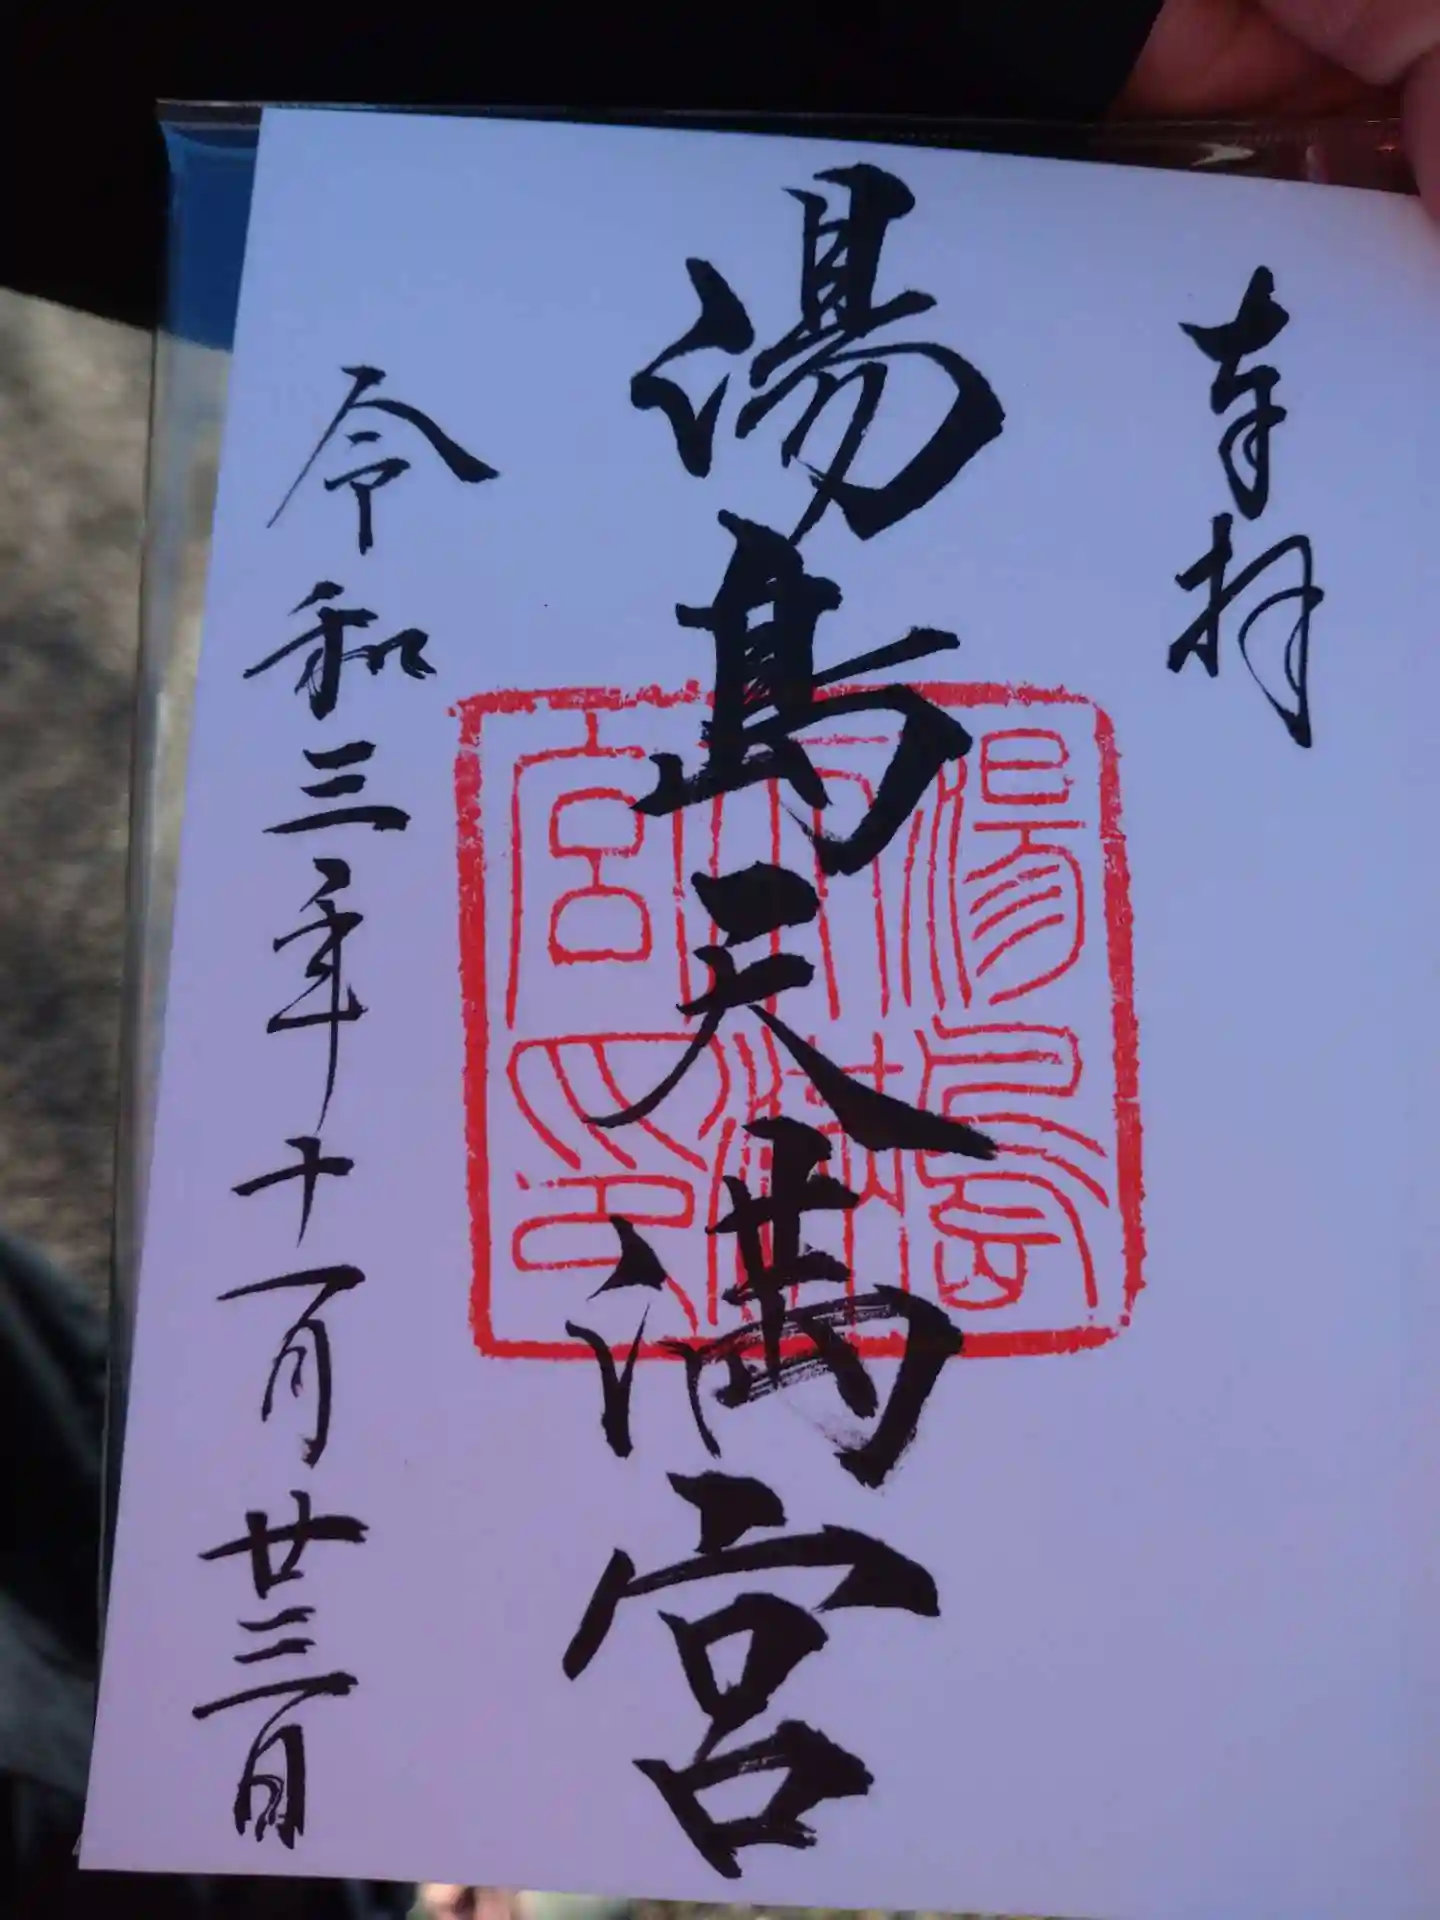 奉拝
湯島天満宮
湯島天満宮印
令和三年十一月廿三日